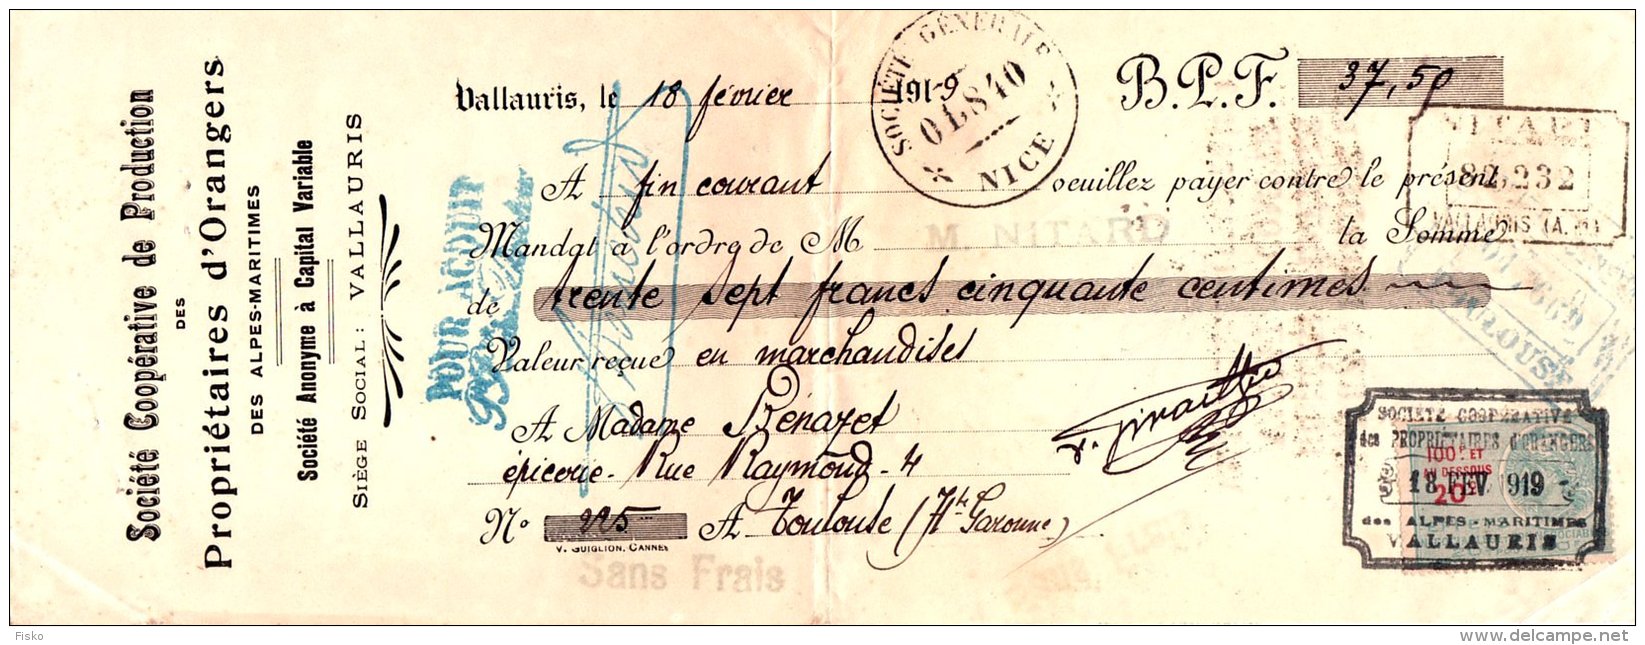 Société Coopérative de Production
DES
Propriétaires d'Orangers
DES ALPES-MARITIMES
Société Anonyme à Capital Variable
SIÈGE SOCIAL: VALLAURIS
Vallauris, le 18 février 1919
B.P.F. 37,50
SOCIÉTÉ GÉNÉRALE
OLS40
NICE
A fin courant veuillez payer contre le présent
82,232
VALLAURIS (A.M)
Mandat à l'ordre de M M. NITARD la Somme
de trente sept francs cinquante centimes
Valeur reçue en marchandises
POUR ACQUIT
TOULOUSE
A Madame Bénazet
épicerie - Rue Raymond - 4
No 225 A Toulouse (Hte Garonne)
V. GUIGLION, CANNES
Sans Frais
SOCIETE COOPERATIVE
des PROPRIETAIRES d'ORANGERS
100F ET
AU DESSOUS
20c
18 FEV 919
des ALPES-MARITIMES
VALLAURIS
Fisko
delcampe.net